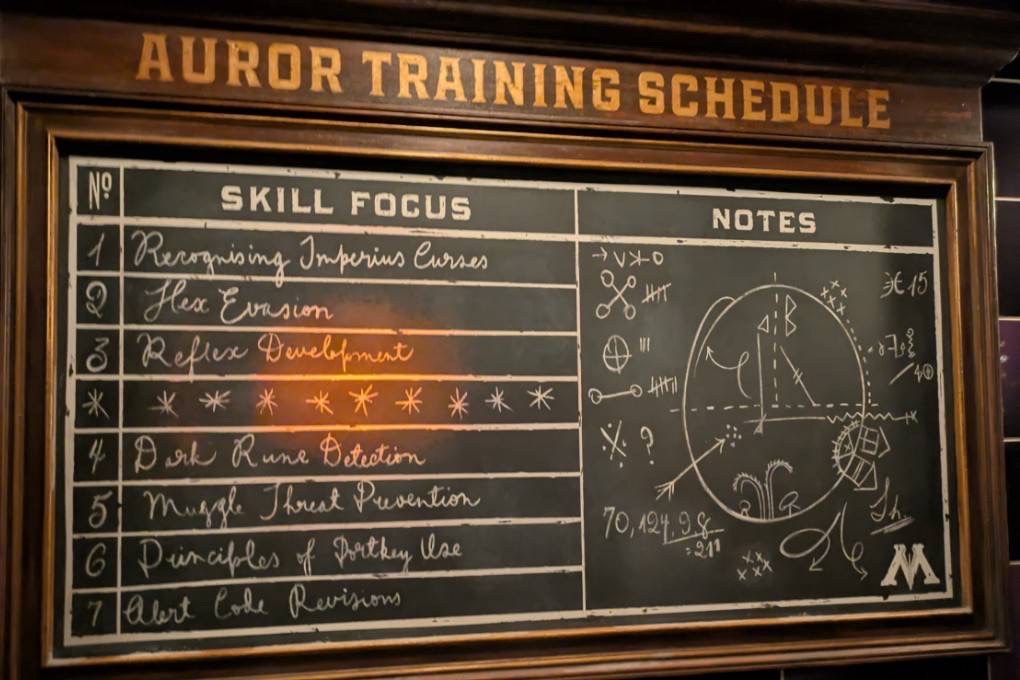 AUROR TRAINING SCHEDULE
Nº SKILL FOCUS NOTES
1 Recognising Imperius Curses
2 Hex Evasion
3 Reflex Development
* * * * * * * * * *
4 Dark Rune Detection
5 Muggle Threat Prevention
6 Principles of Portkey Use
7 Alert Code Revisions
?
15
70,124,98
M